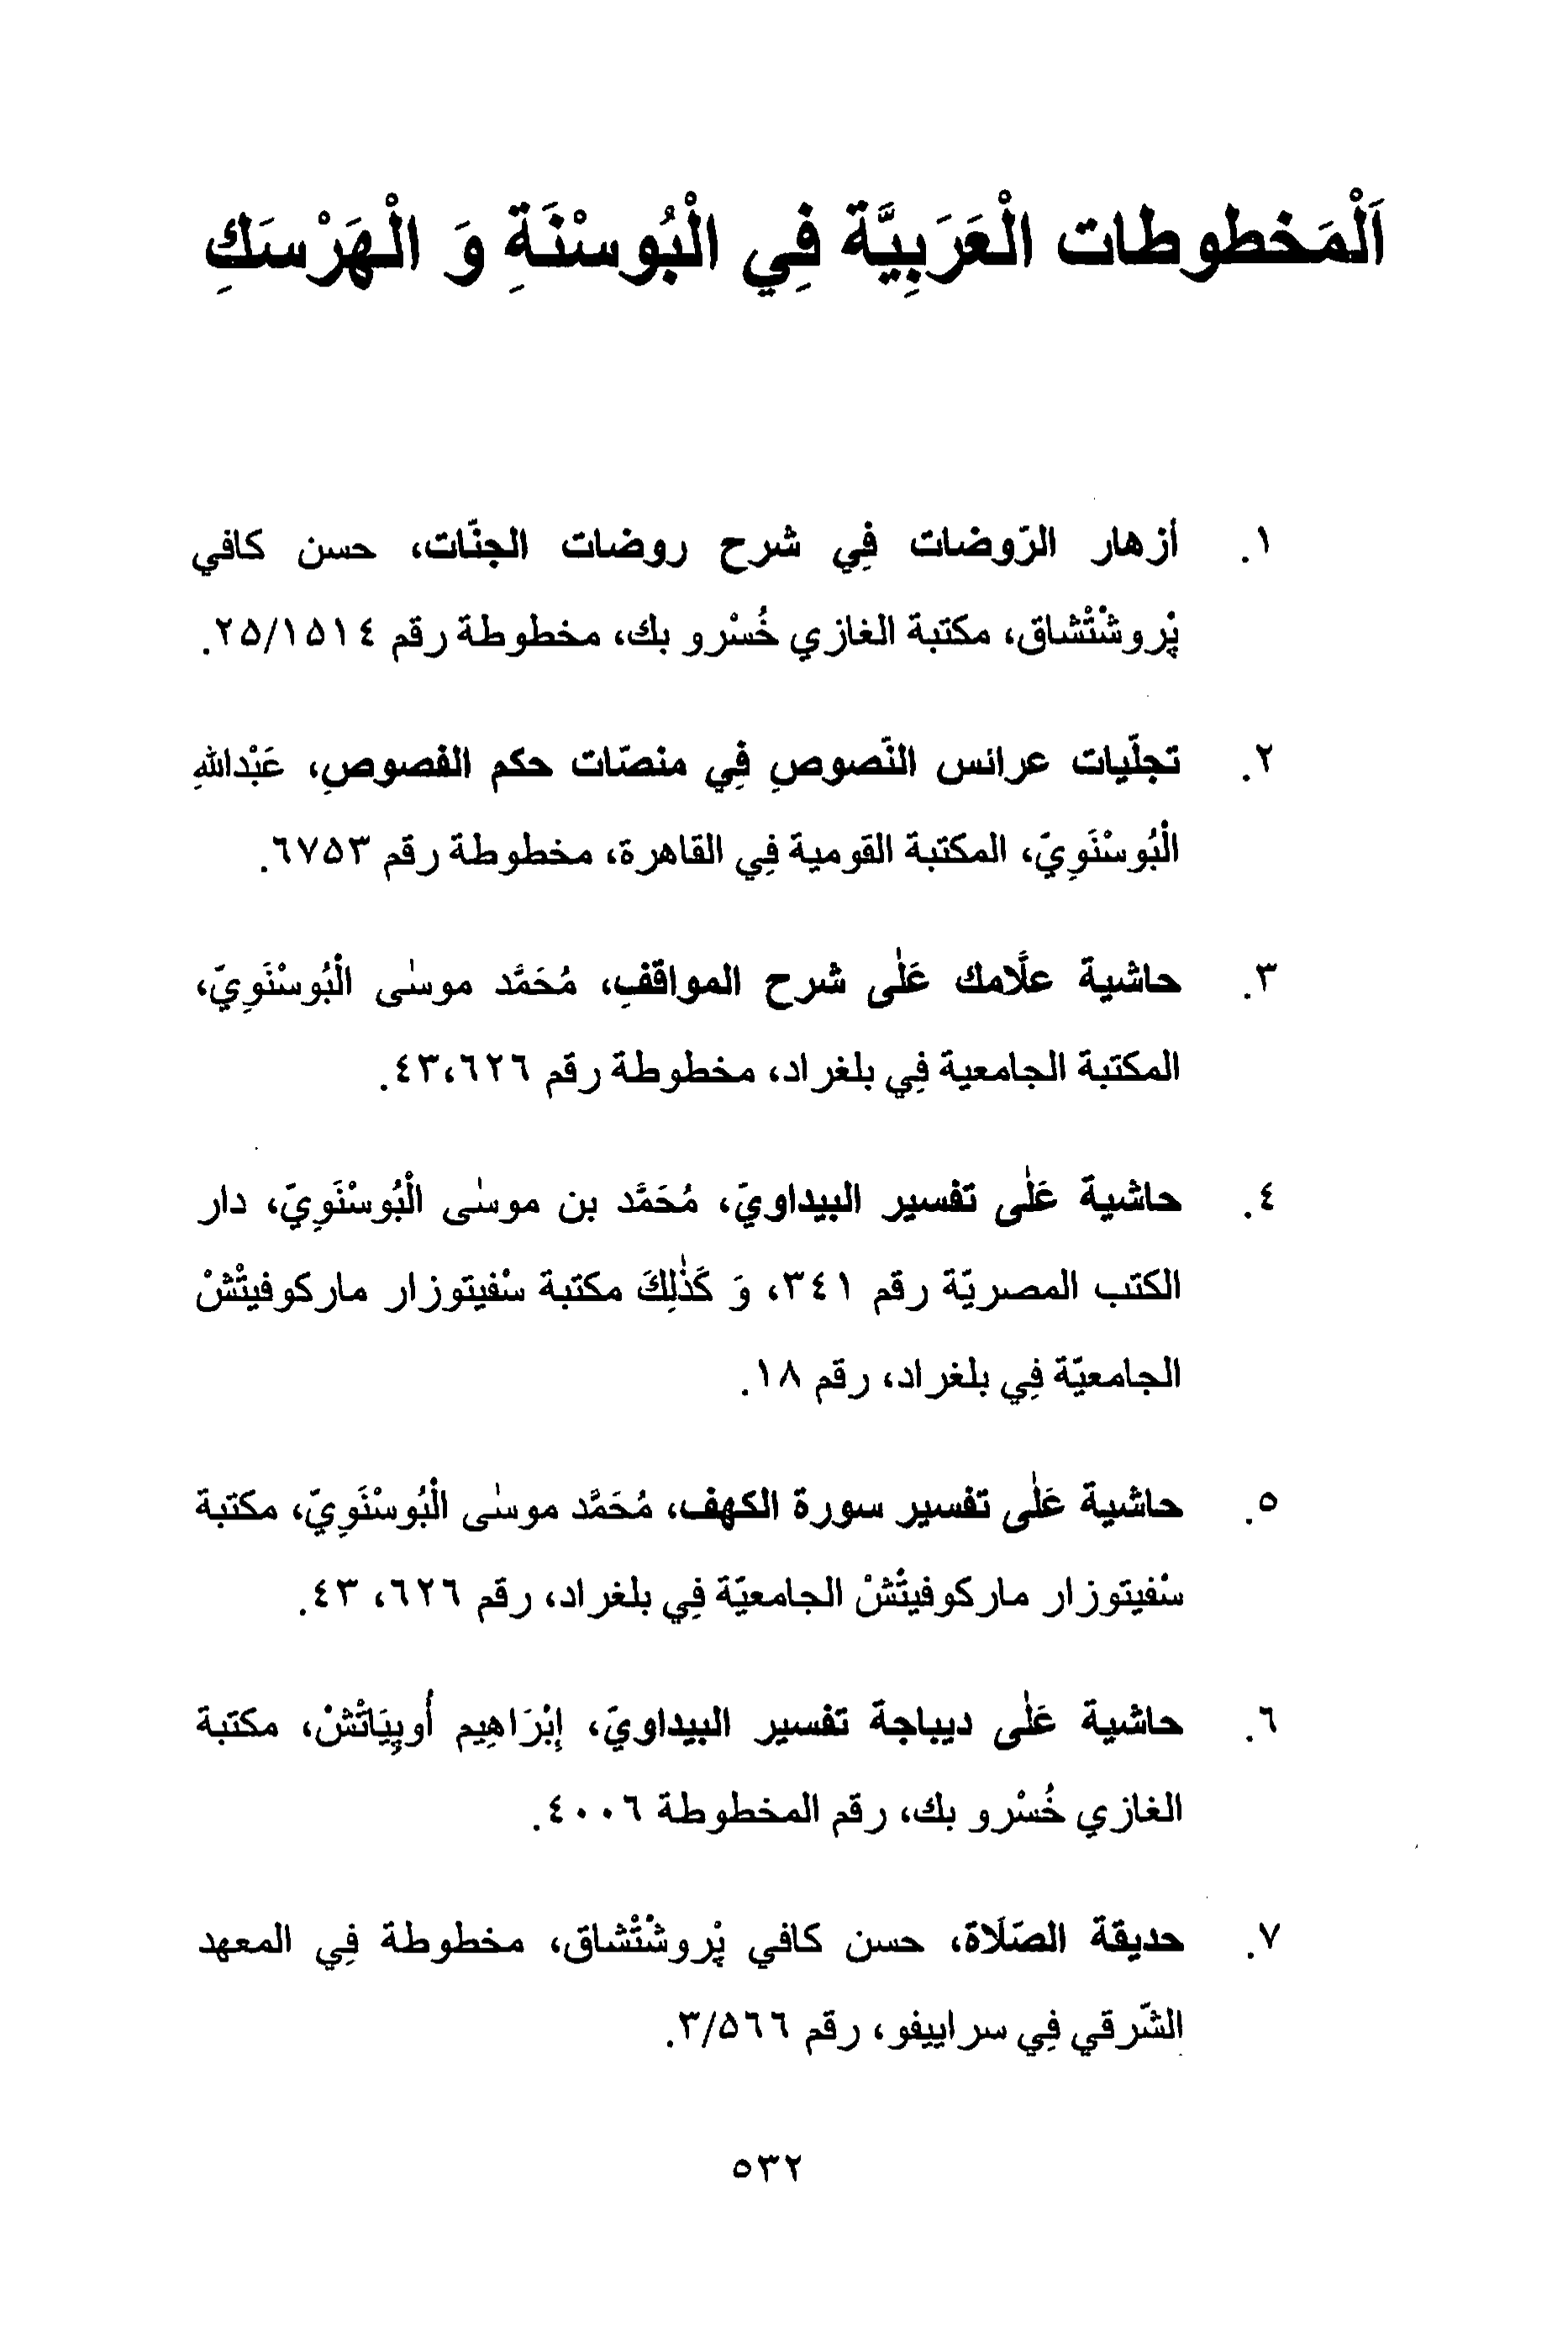 اَلْمَخطوطات الْعَرَبِيَّة فِي الْبُوسْنَةِ وَ الْهَرْسَكِ
١. أزهار الرّوضات فِي شرح روضات الجنّات، حسن كافي
پْروشْتْشاق، مكتبة الغازي خُسْرو بك، مخطوطة رقم ٢٥/١٥١٤.
٢. تجلّيات عرائس النّصوصِ فِي منصّات حكم الفصوصِ، عَبْداللهِ
الْبُوسْنَوِيّ، المكتبة القومية فِي القاهرة، مخطوطة رقم ٦٧٥٣.
٣. حاشية علَّامك عَلٰى شرح المواقفِ، مُحَمَّد موسٰى الْبُوسْنَوِيّ،
المكتبة الجامعية فِي بلغراد، مخطوطة رقم ٤٣،٦٢٦.
٤. حاشية عَلٰى تفسير البيداويّ، مُحَمَّد بن موسٰى الْبُوسْنَوِيّ، دار
الكتب المصريّة رقم ٣٤١، وَ كَذٰلِكَ مكتبة سْفيتوزار ماركوفيتْشْ
الجامعيّة فِي بلغراد، رقم ١٨.
٥. حاشية عَلٰى تفسير سورة الكهف، مُحَمَّد موسٰى الْبُوسْنَوِيّ، مكتبة
سْفيتوزار ماركوفيتْشْ الجامعيّة فِي بلغراد، رقم ٦٢٦، ٤٣.
٦. حاشية عَلٰى ديباجة تفسير البيداويّ، إبْرَاهِيم أوپِيَاتْشْ، مكتبة
الغازي خُسْرو بك، رقم المخطوطة ٤٠٠٦.
٧. حديقة الصّلَاة، حسن كافي پْروشْتْشاق، مخطوطة فِي المعهد
الشّرقي فِي سراييفو، رقم ٣/٥٦٦.
٥٣٢